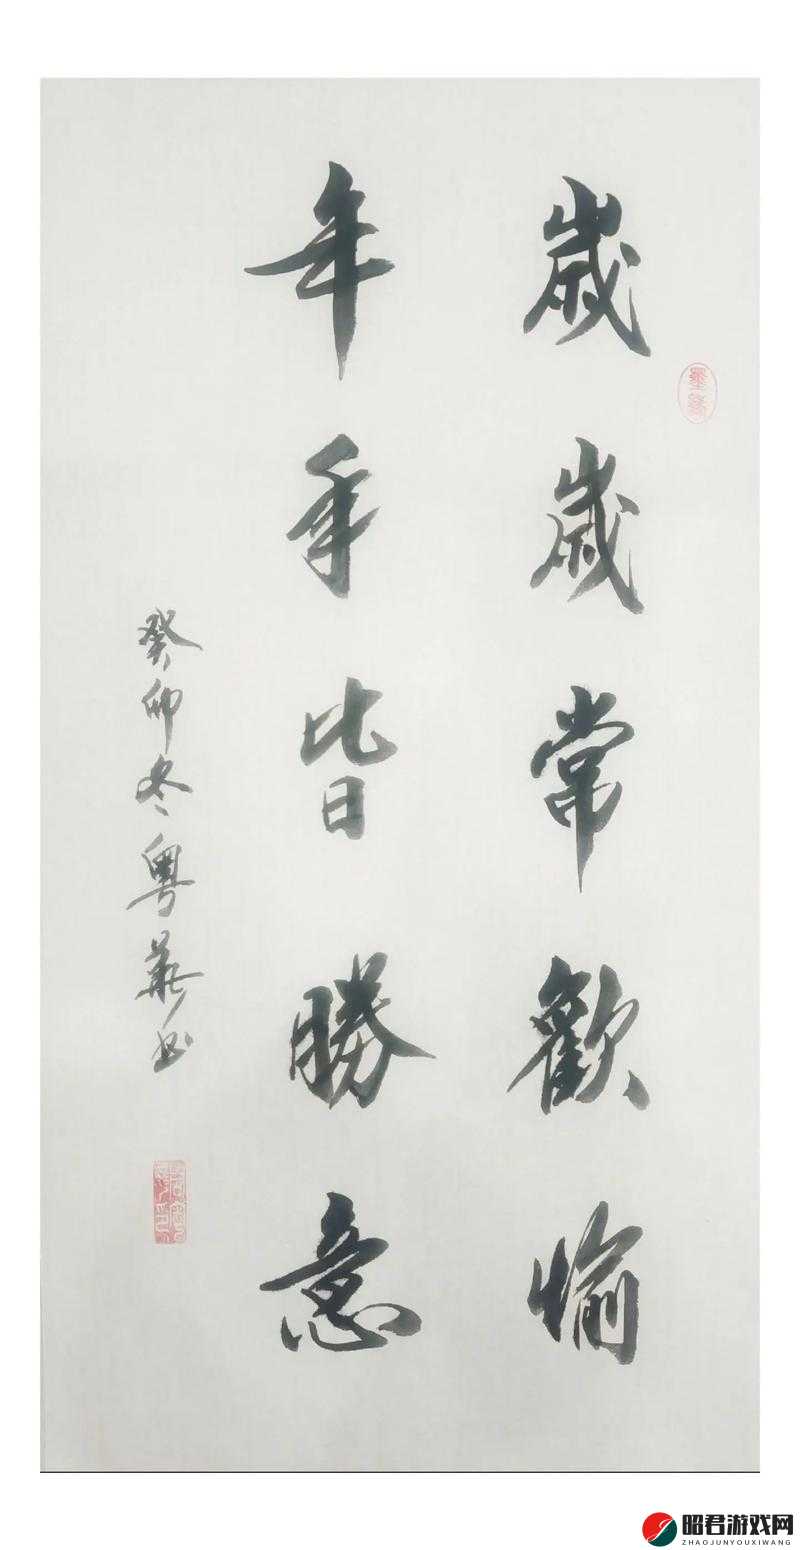 歲歲常歡愉
年年皆勝意
癸卯冬粵華书
昭君游戏网
ZHAOJUNYOUXIWANG